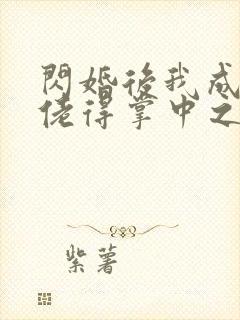 閃婚後我成
佬得掌中之
紫薯